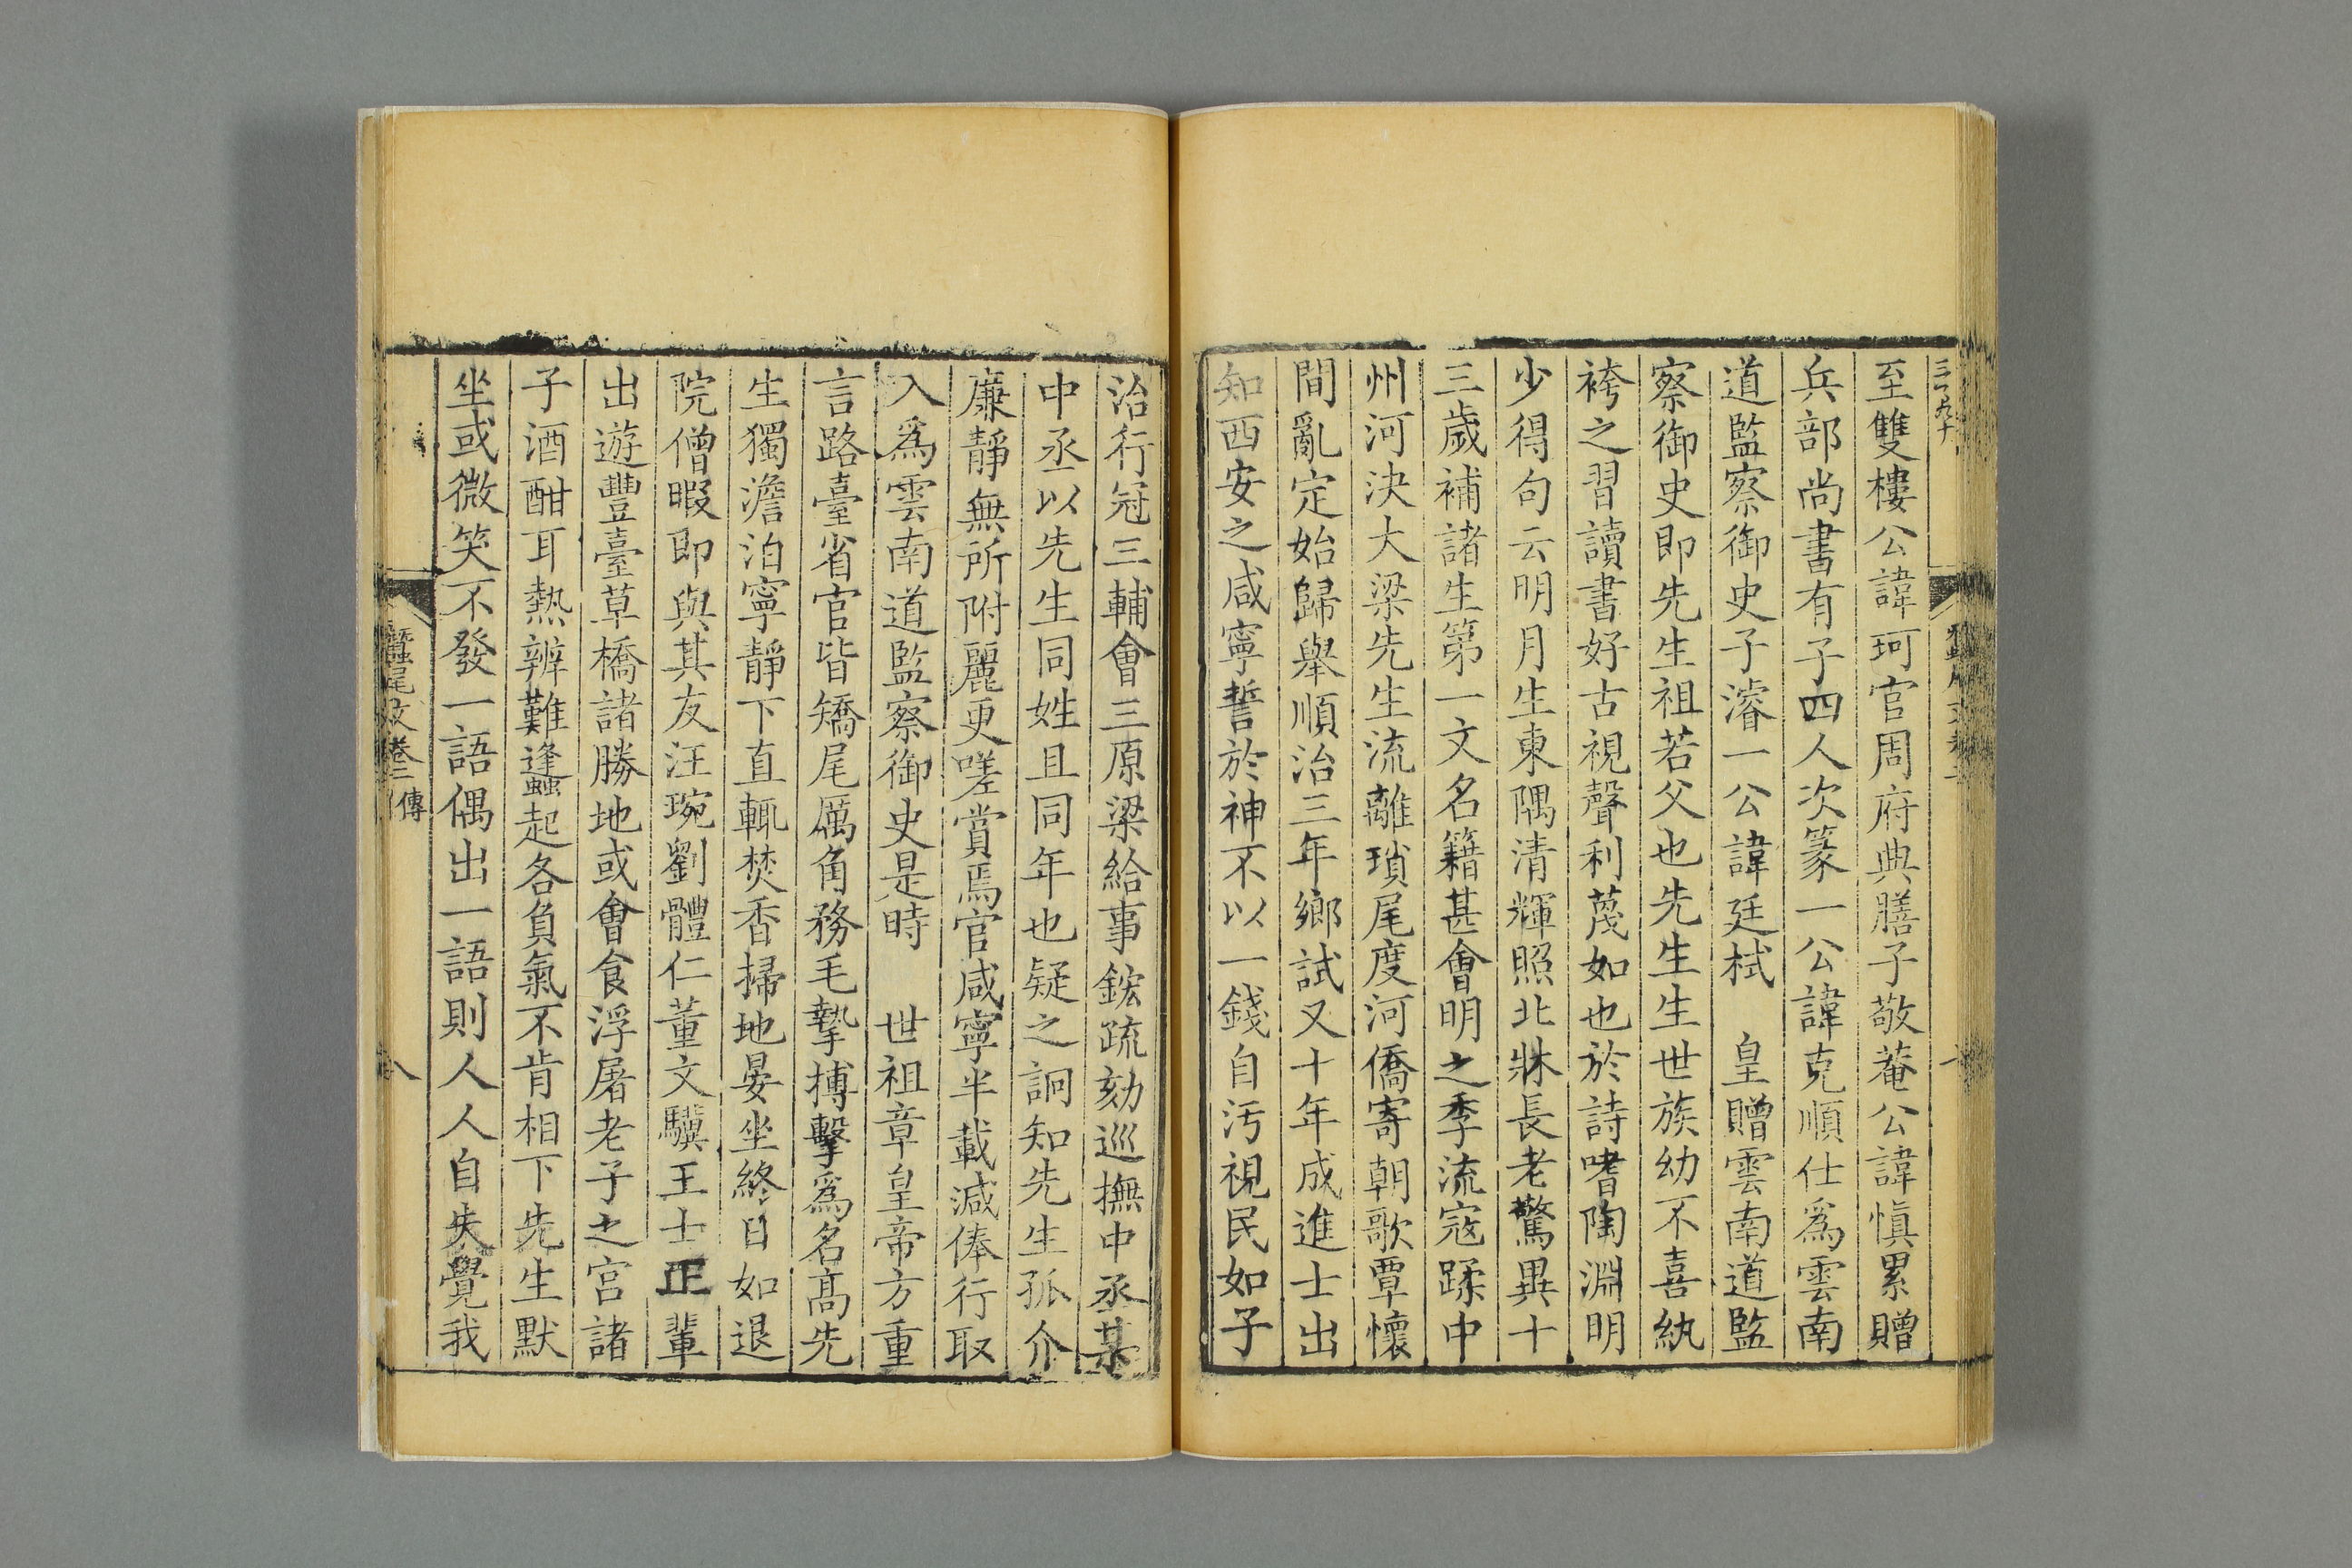 至雙樓公諱珂官周府典膳子敬菴公諱慎累贈
兵部尚書有子四人次篆一公諱克順仕爲雲南
道監察御史子濬一公諱廷栻　皇贈雲南道監
察御史即先生祖若父也先生生世族幼不喜紈
袴之習讀書好古視聲利蔑如也於詩嗜陶淵明
少得句云明月生東隅清輝照北牀長老驚異十
三歲補諸生第一文名籍甚會明之季流寇蹂中
州河決大梁先生流離瑣尾度河僑寄朝歌覃懷
間亂定始歸舉順治三年鄉試又十年成進士出
知西安之咸寧誓於神不以一錢自汚視民如子
治行冠三輔會三原梁給事鋐疏劾巡撫中丞某
中丞以先生同姓且同年也疑之詗知先生孤介
廉靜無所附麗更嗟賞焉官咸寧半載減俸行取
入爲雲南道監察御史是時　世祖章皇帝方重
言路臺省官皆矯尾厲角務毛摯搏擊爲名高先
生獨澹泊寧靜下直輒焚香掃地晏坐終日如退
院僧暇即與其友汪琬劉體仁董文驥王士正輩
出遊豐臺草橋諸勝地或會食浮屠老子之宮諸
子酒酣耳熱辨難蠭起各負氣不肯相下先生默
坐或微笑不發一語偶出一語則人人自失覺我
蠶尾文卷二　傳
八